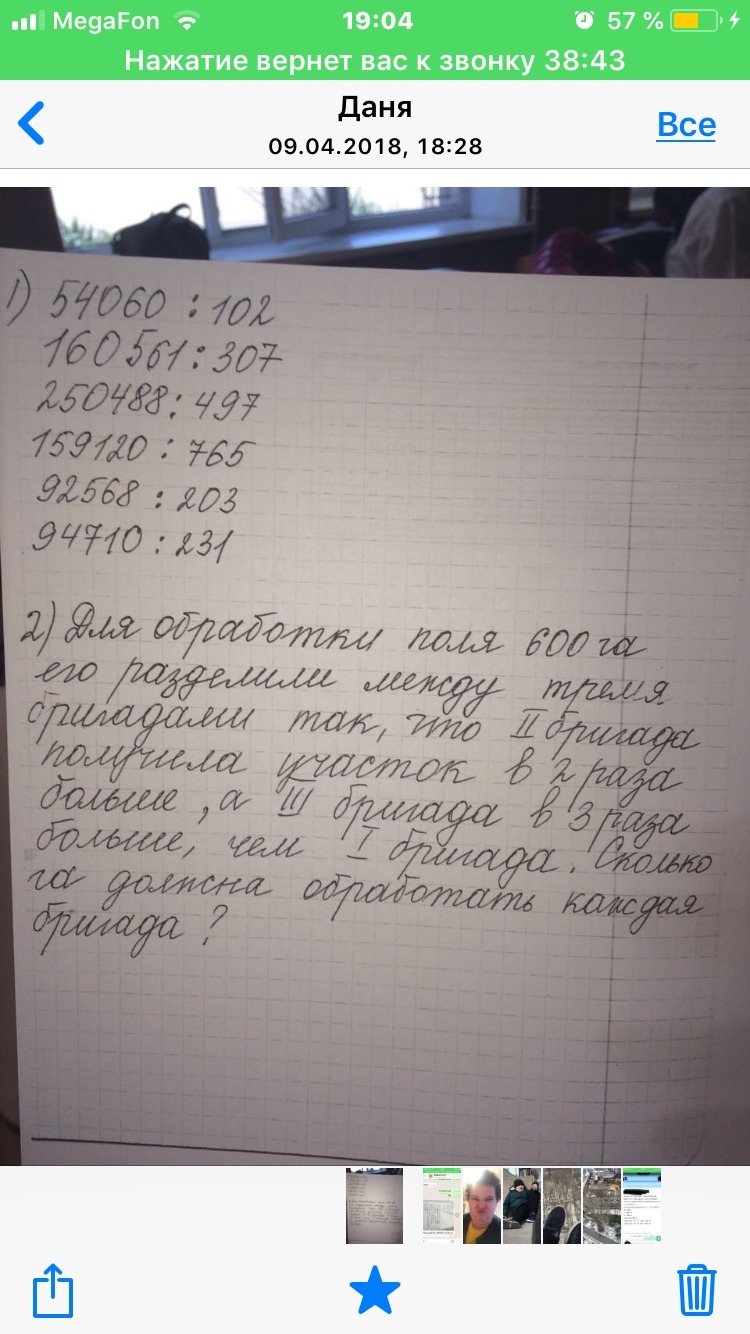 MegaFon 19:04 57 %
Нажатие вернет вас к звонку 38:43
Даня
09.04.2018, 18:28
Все
1) 54060 : 102
160561 : 307
250488 : 497
159120 : 765
92568 : 203
94710 : 231
2) Для обработки поля 600 га
его разделили между тремя
бригадами так, что II бригада
получила участок в 2 раза
больше, а III бригада в 3 раза
больше, чем I бригада. Сколько
га должна обработать каждая
бригада?